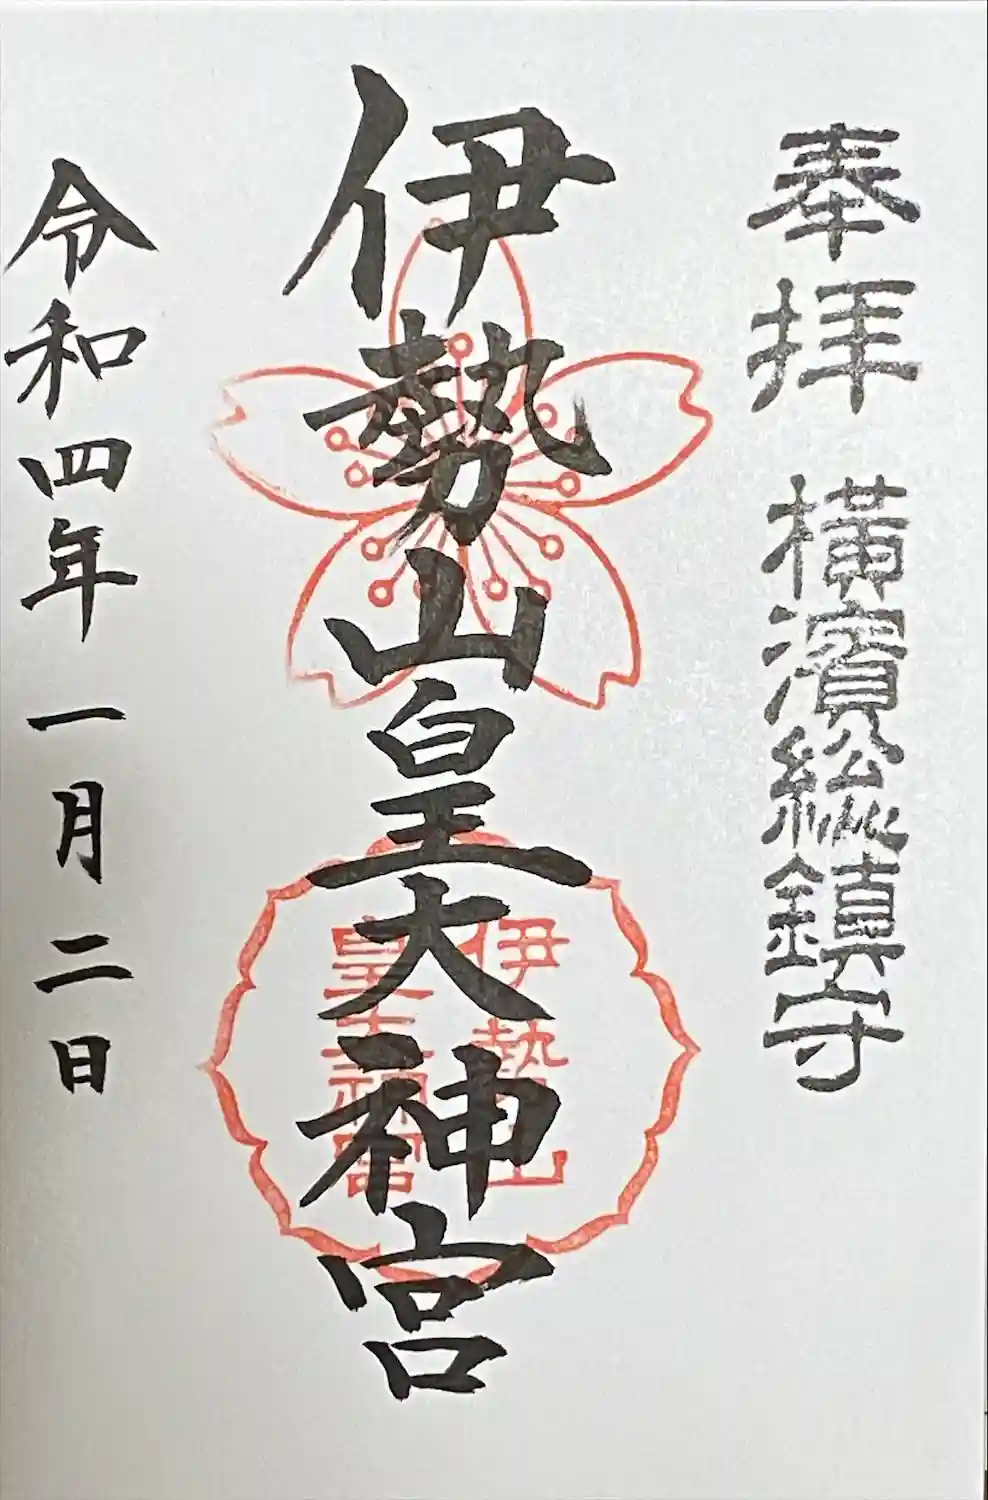 奉拝 横濱総鎮守
伊勢山皇大神宮
伊勢山
皇大神宮
令和四年一月二日